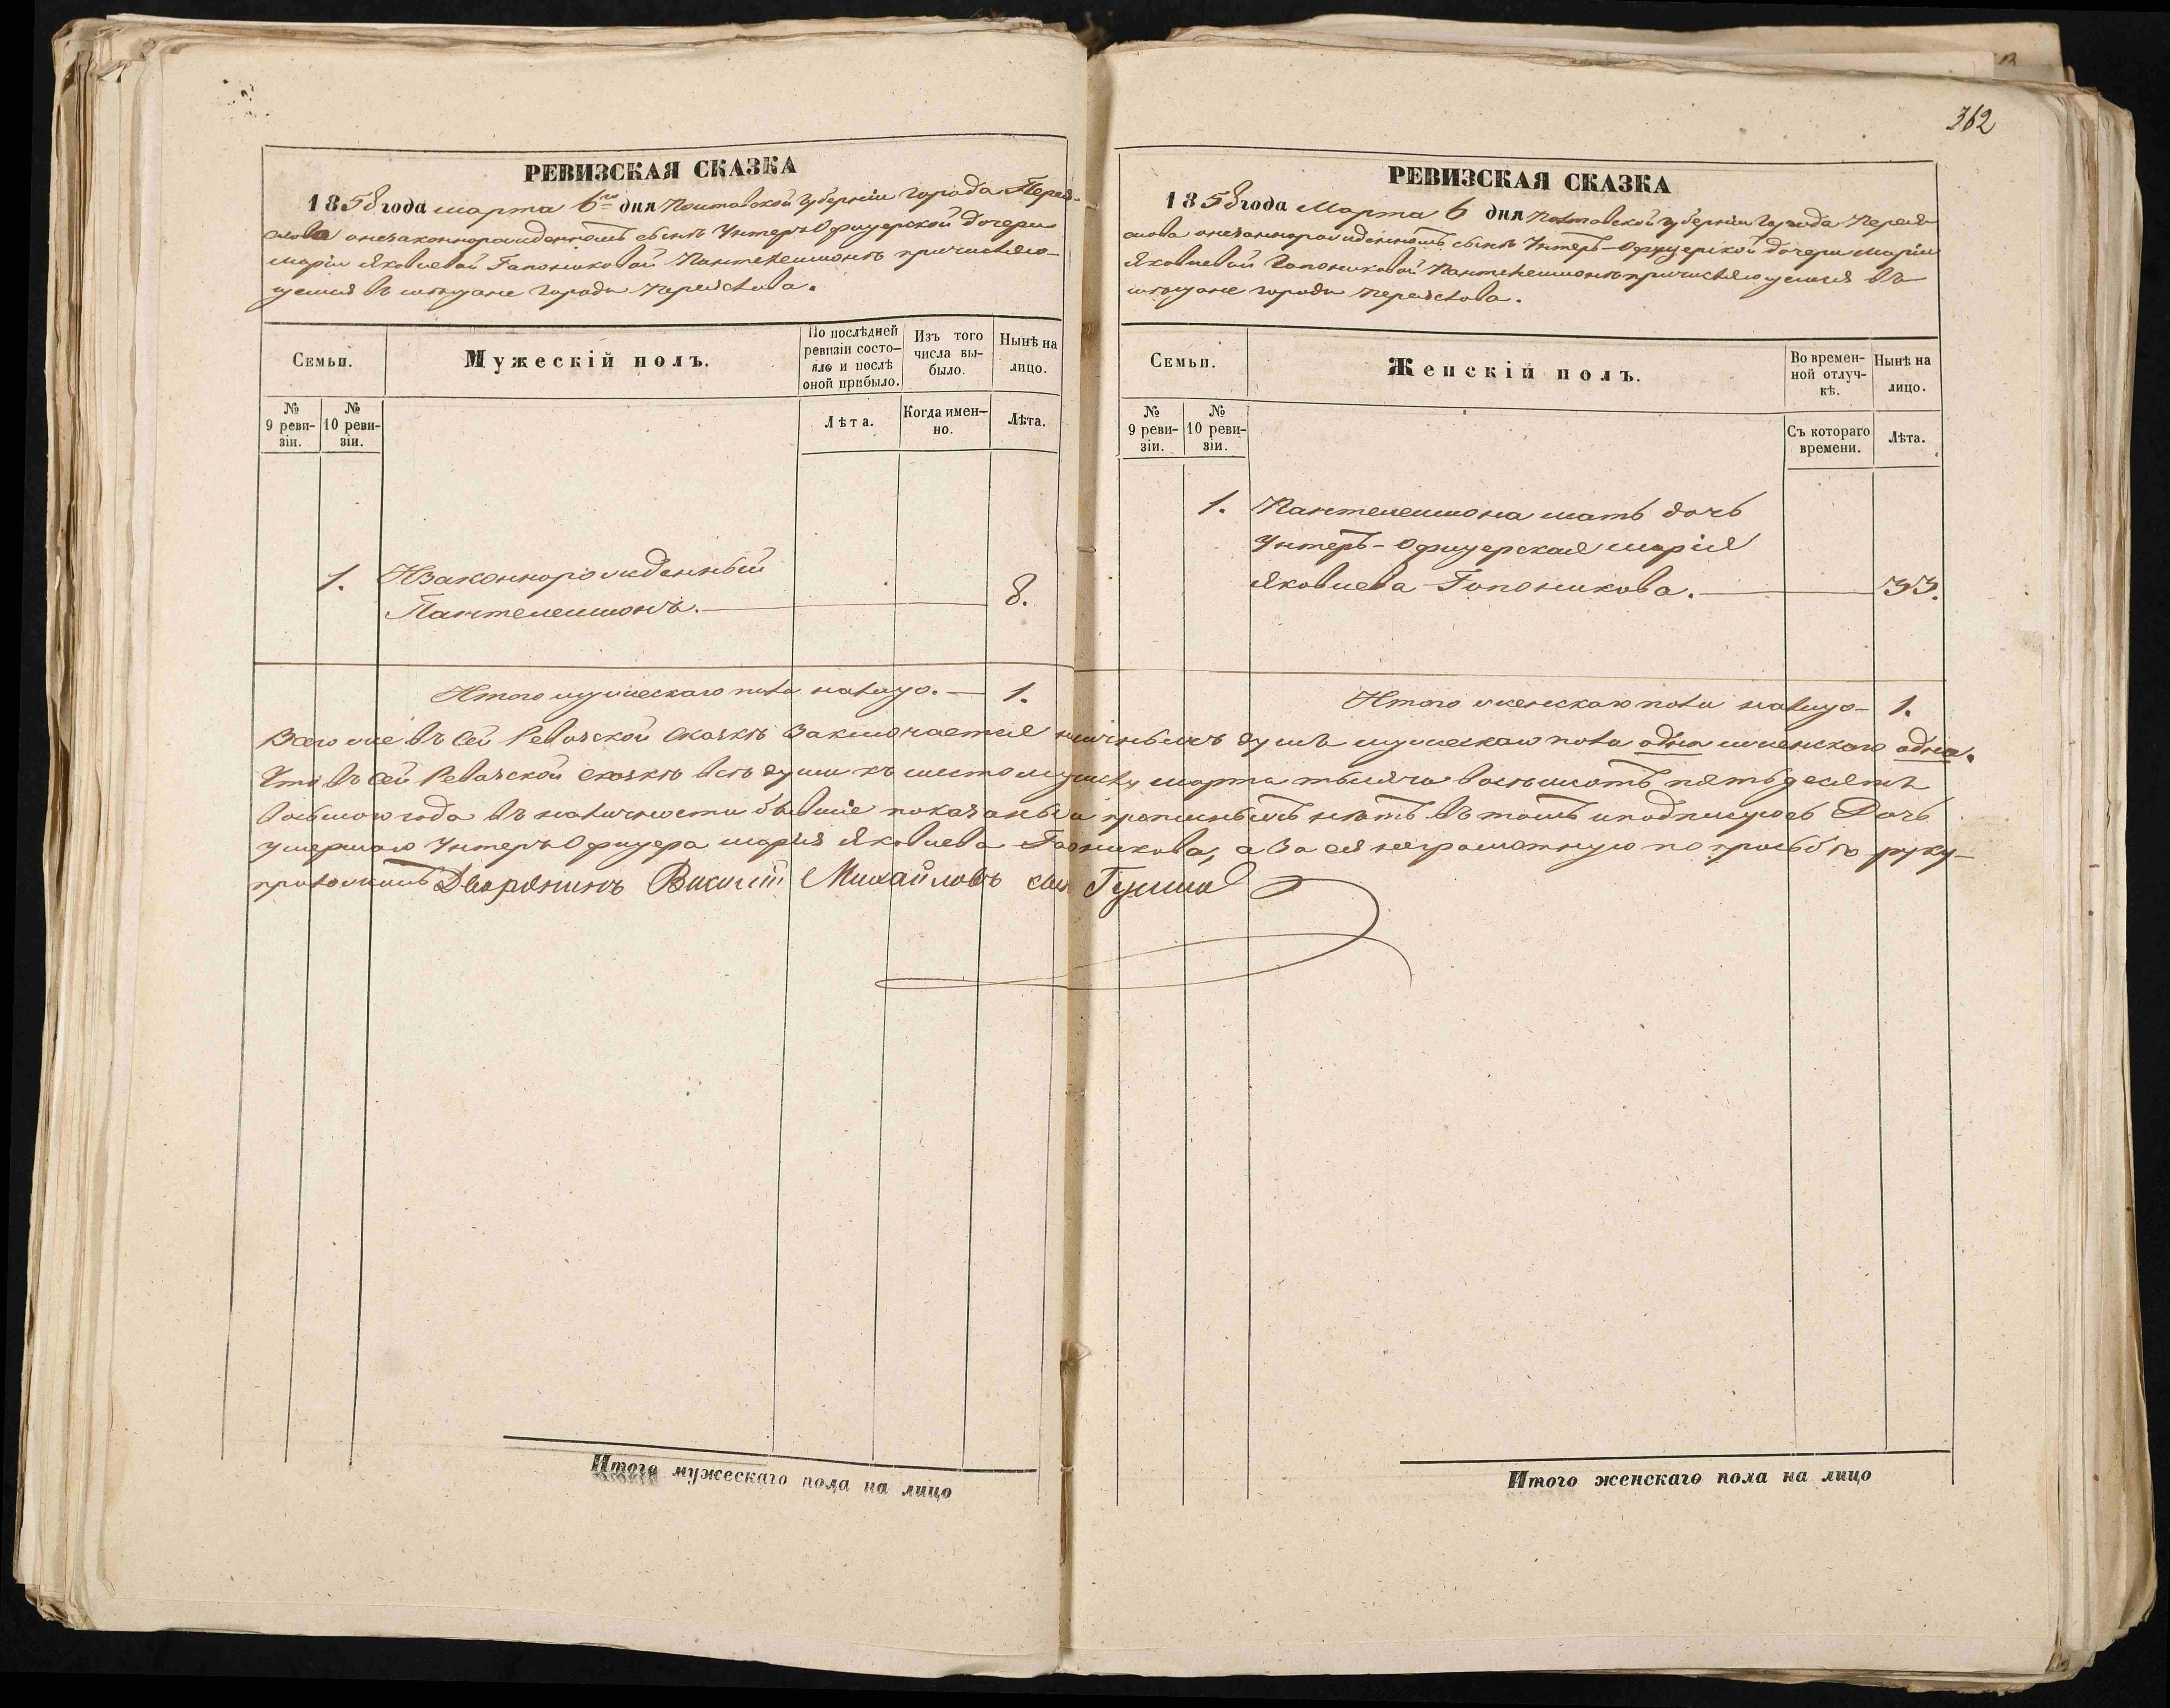 362
РЕВИЗСКАЯ СКАЗКА
1858 года марта 6го дня Полтавской Губерніи города Перея-
слова онезаконнорожденномъ сынѣ Унтеръ Офицерской дочери
Маріи Яковлевой Гапониковой Пантелеимонѣ причисляю-
щемся въ мѣщане города Переяслова.
Семьи.
Мужескій полъ.
По послѣдней ревизіи состо-яло и послѣ оной прибыло.
Изъ того числа вы-было.
Нынѣ на лицо.
№ 9 реви-зіи.
№ 10 реви-зіи.
Лѣта.
Когда имен-но.
Лѣта.
1. Незаконнорожденный
Пантелеимонъ. 8.
Итого мужескаго пола налицо. — 1.
РЕВИЗСКАЯ СКАЗКА
1858 года Марта 6 дня Полтавской губерніи Города Перея-
слова онезаконнорожденномъ сынѣ Унтеръ-Офицерской дочери Маріи
Яковлевой Гапониковой Пантелеимонѣ причисляющемся въ
мѣщане города Переяслова.
Семьи.
Женскій полъ.
Во времен-ной отлуч-кѣ.
Нынѣ на лицо.
№ 9 реви-зіи.
№ 10 реви-зіи.
Съ котораго времени.
Лѣта.
1. Пантелеимона мать дочь
Унтеръ-Офицерская Марія
Яковлева Гапоникова. 33.
Итого женскаго пола налицо — 1.
Всего же въ сей Ревизской сказкѣ заключается наличныхъ душъ мужескаго пола одна женскаго одна.
Что въ сей Ревизской сказкѣ всѣ души къ шестому числу марта тысяча восьмсотъ пятьдесятъ
восьмого года въ наличности бывшіе показаны и прописныхъ нѣтъ въ томъ и подписуюсь Дочь
умершаго Унтеръ Офицера Марія Яковлева Гапоникова, а за ея неграмотную по прозьбѣ руку
приложилъ Дворянинъ Василій Михайловъ сынъ
Итого мужескаго пола на лицо
Итого женскаго пола на лицо